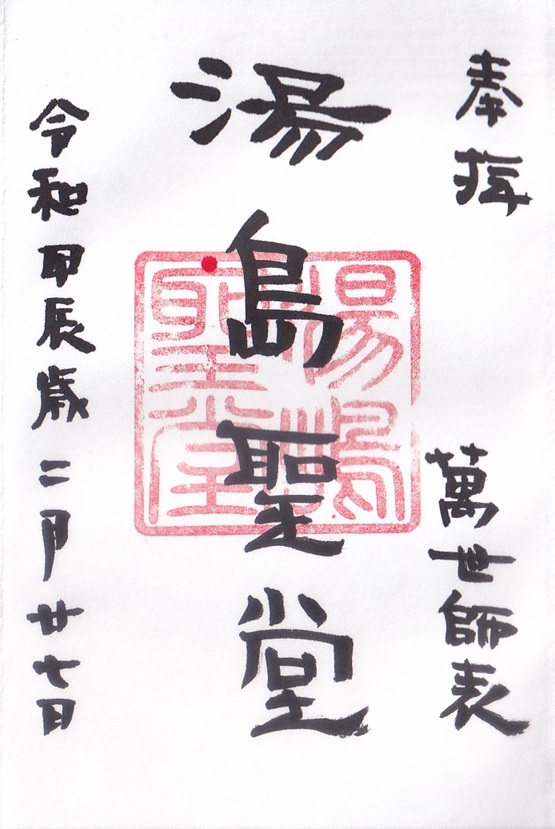 奉拝
萬世師表
湯島聖堂
湯島聖堂
令和甲辰歳二月廿七日